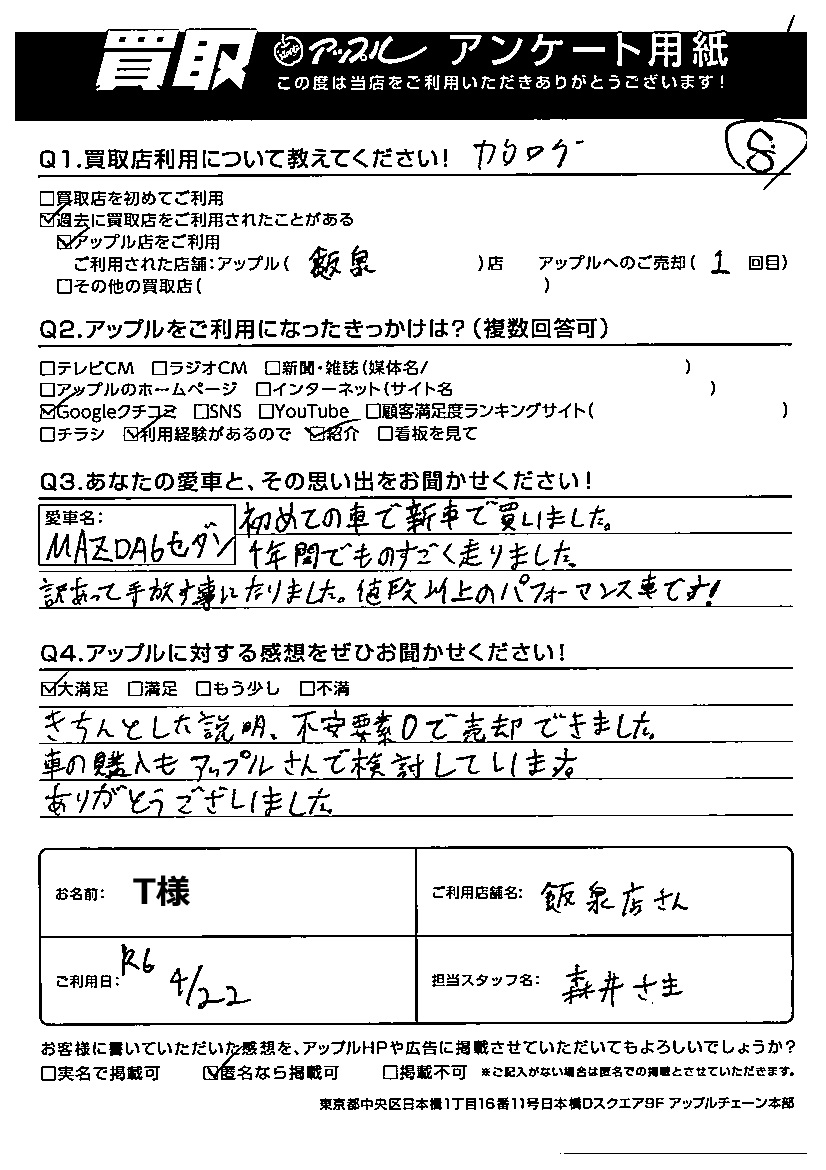 買取 アップル アンケート用紙
この度は当店をご利用いただきありがとうございます!
Q1.買取店利用について教えてください! カタログ 8
□買取店を初めてご利用
☑過去に買取店をご利用されたことがある
☑アップル店をご利用
ご利用された店舗:アップル( 飯泉 )店 アップルへのご売却( 1 回目)
□その他の買取店( )
Q2.アップルをご利用になったきっかけは?(複数回答可)
□テレビCM □ラジオCM □新聞・雑誌(媒体名/ )
□アップルのホームページ □インターネット(サイト名 )
☑Googleクチコミ □SNS □YouTube □顧客満足度ランキングサイト( )
□チラシ ☑利用経験があるので ☑紹介 □看板を見て
Q3.あなたの愛車と、その思い出をお聞かせください!
愛車名: 初めての車で新車で買いました。
MAZDA6セダン 1年間でものすごく走りました。
訳あって手放す事になりました。値段以上のパフォーマンス車です!
Q4.アップルに対する感想をぜひお聞かせください!
☑大満足 □満足 □もう少し □不満
きちんとした説明、不安要素0で売却できました。
車の購入もアップルさんで検討しています。
ありがとうございました。
お名前: T様 ご利用店舗名: 飯泉店さん
ご利用日: R6 4/22 担当スタッフ名: 森井さま
お客様に書いていただいた感想を、アップルHPや広告に掲載させていただいてもよろしいでしょうか?
□実名で掲載可 ☑匿名なら掲載可 □掲載不可 ※ご記入がない場合は匿名での掲載とさせていただきます。
東京都中央区日本橋1丁目16番11号日本橋Dスクエア9F アップルチェーン本部